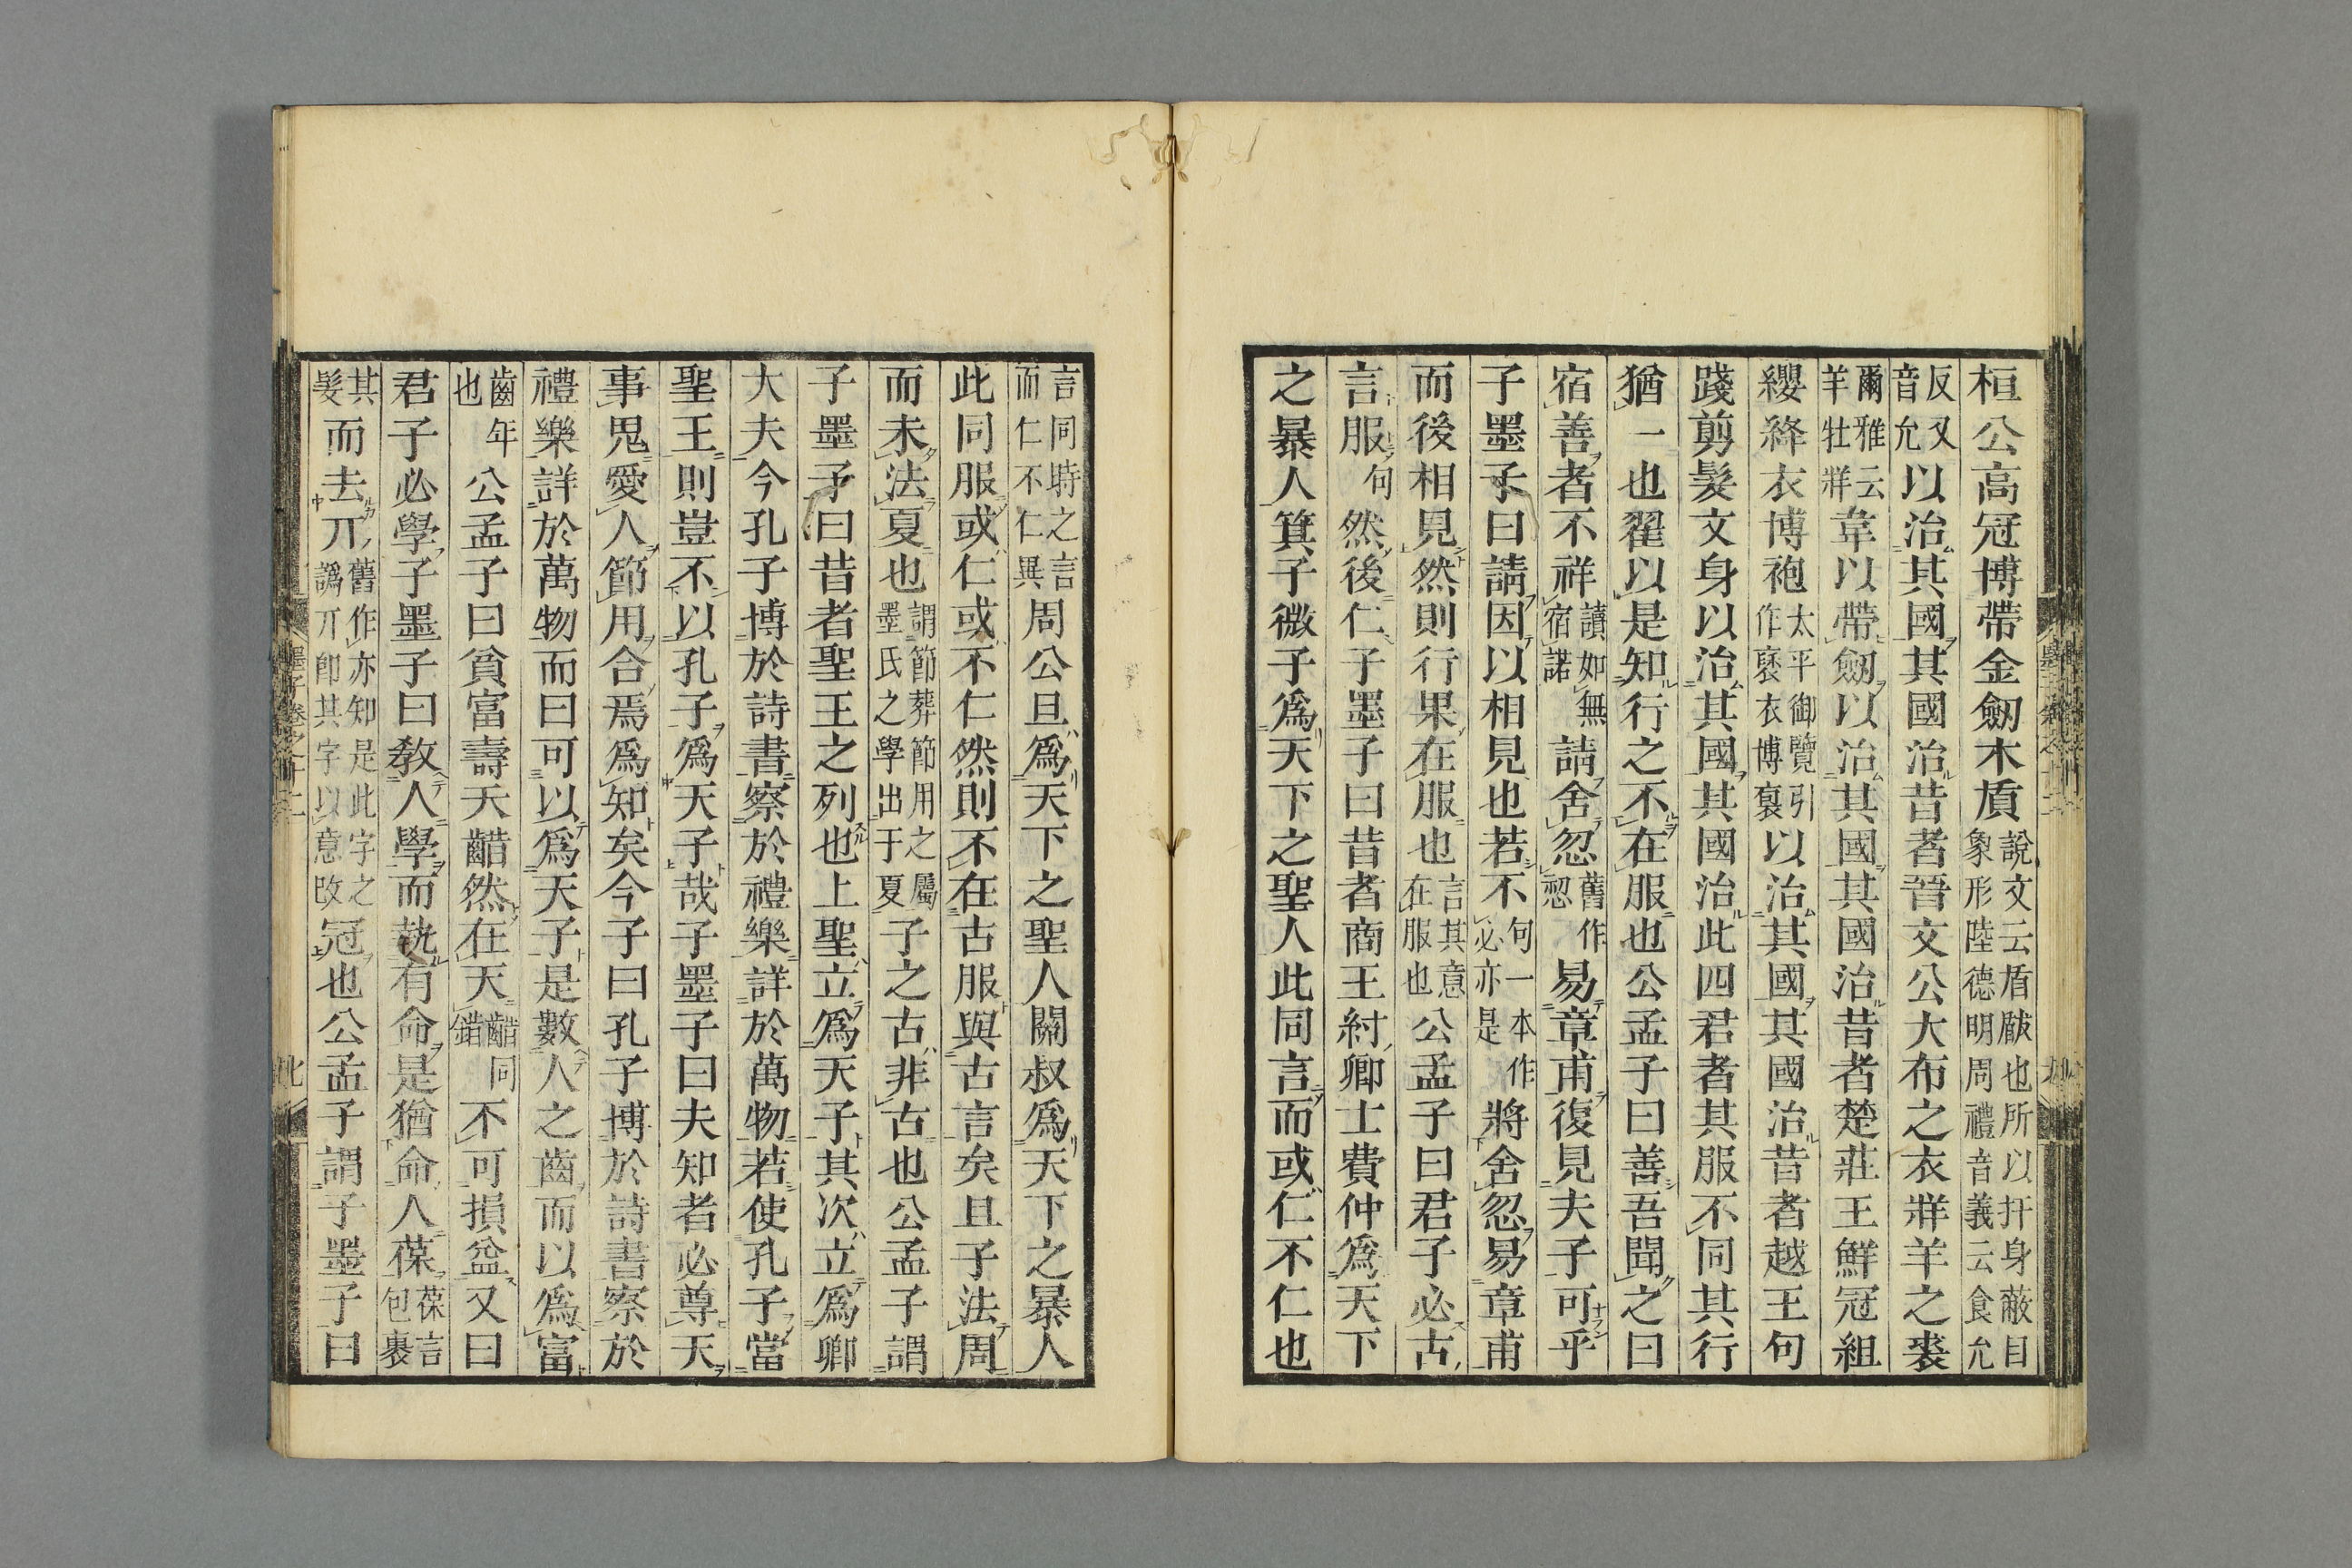 桓公高冠博帶金劒木盾說文云盾瞂也所以扞身蔽目象形陸德明周禮音義云食允
反又音允以治其國其國治昔者晉文公大布之衣牂羊之裘
爾雅云羊牡牂韋以帶劒以治其國其國治昔者楚莊王鮮冠組
纓絳衣博袍太平御覽引作裦衣博裒以治其國其國治昔者越王句
踐剪髮文身以治其國其國治此四君者其服不同其行
猶一也翟以是知行之不在服也公孟子曰善吾聞之曰
宿善者不祥讀如無宿諾請舍忽舊作㤅易章甫復見夫子可乎
子墨子曰請因以相見也若不句一本作必亦是將舍忽易章甫
而後相見然則行果在服也言其意在服也公孟子曰君子必古
言服句然後仁子墨子曰昔者商王紂卿士費仲爲天下
之暴人箕子微子爲天下之聖人此同言而或仁不仁也
言同時之言而仁不仁異周公旦爲天下之聖人關叔爲天下之暴人
此同服或仁或不仁然則不在古服與古言矣且子法周
而未法夏也謂節葬節用之屬墨氏之學出于夏子之古非古也公孟子謂
子墨子曰昔者聖王之列也上聖立爲天子其次立爲卿
大夫今孔子博於詩書察於禮樂詳於萬物若使孔子當
聖王則豈不以孔子爲天子哉子墨子曰夫知者必尊天
事鬼愛人節用合焉爲知矣今子曰孔子博於詩書察於
禮樂詳於萬物而曰可以爲天子是數人之齒而以爲富
齒年也公孟子曰貧富壽夭齰然在天齰同錯不可損益又曰
君子必學子墨子曰教人學而執有命是猶命人葆葆言包裹
其髮而去丌舊作亦知是此字之譌丌卽其字以意改冠也公孟子謂子墨子曰
墨子卷之十二